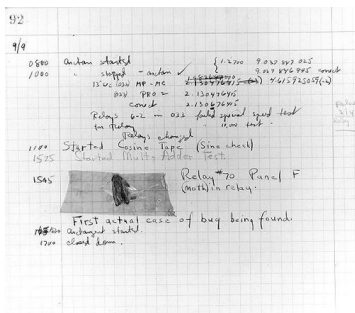 92
9/9
0800 antan started { 1.2700 9.037 847 025
1000 " stopped - antan ✓ 9.037 846 995 conect
13" uc (032) MP - MC 4.615925059(-2)
(033) PRO 2 2.130476415
conect 2.130676415
Relays 6-2 in 033 failed special speed test
in Relay 10,000 test.
Relays changed
1100 Started Cosine Tape (Sine check)
1525 Started Multi-Adder Test.
1545 Relay #70 Panel F
(moth) in relay.
First actual case of bug being found.
antangent started.
1700 closed down.